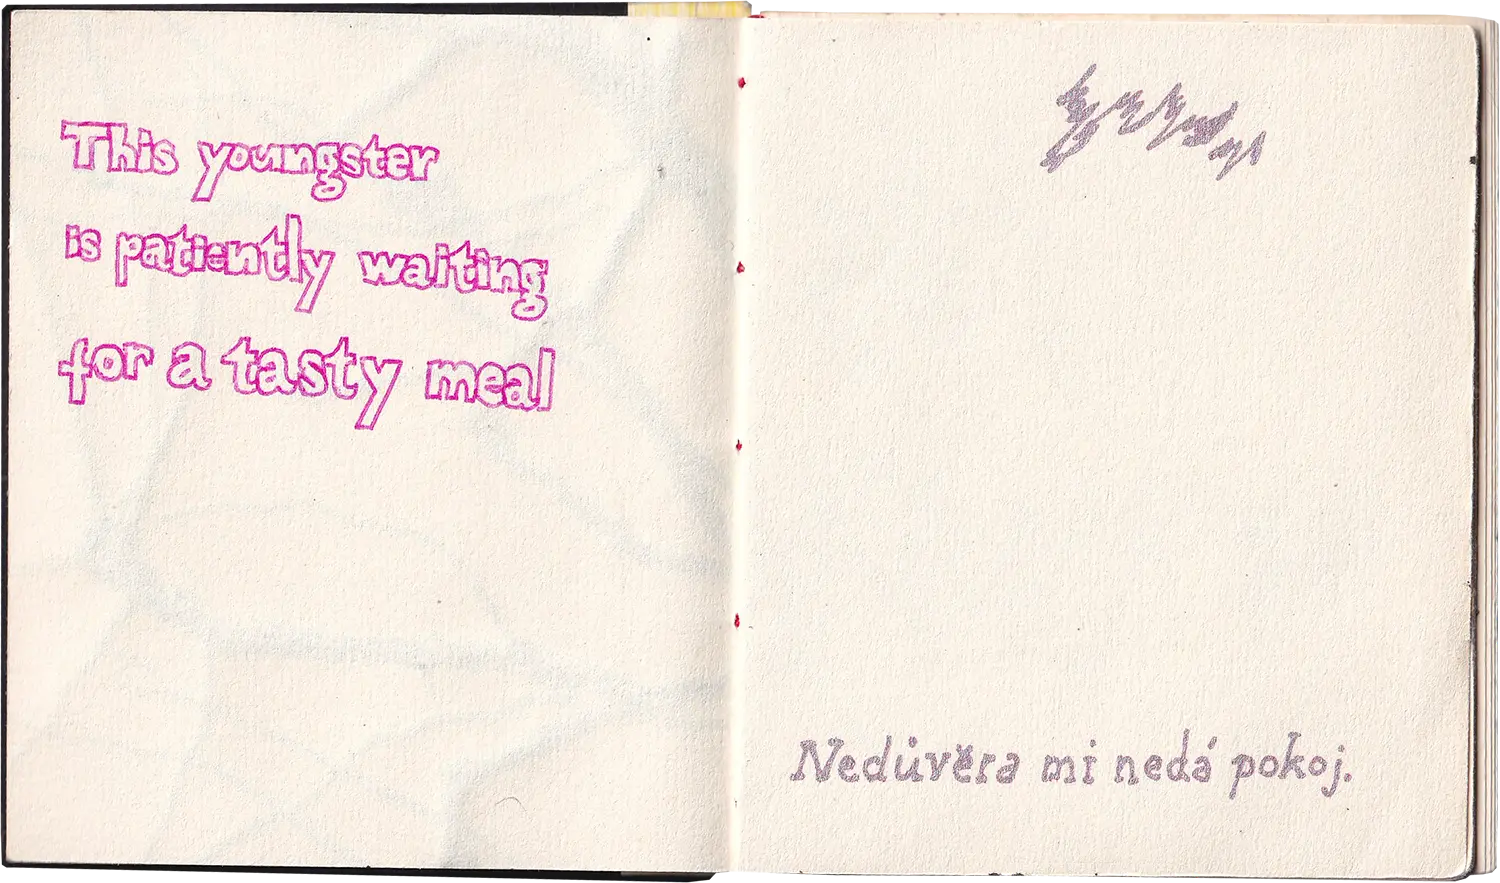 This youngster
is patiently waiting
for a tasty meal
Nedůvěra mi nedá pokoj.